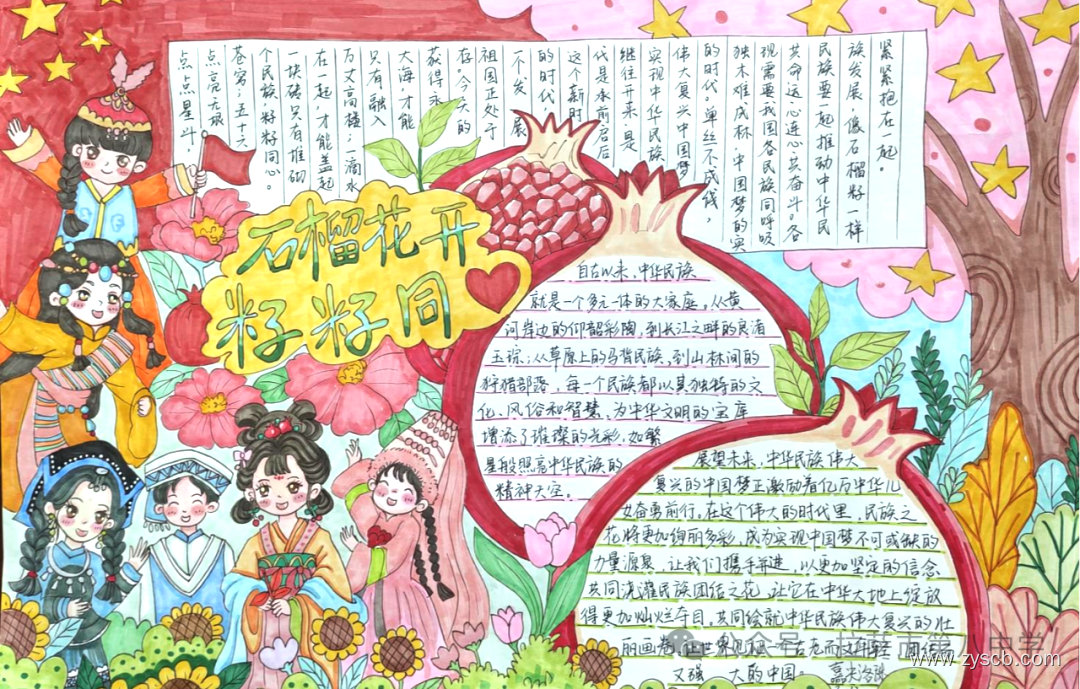 石榴花开
籽籽同
点点星斗，
点亮无垠
苍穹；五十六
个民族，籽籽同心。
一块砖只有堆砌
在一起，才能盖起
万丈高楼；一滴水
只有融入
大海，才能
获得永
存。今天的
祖国正处于
一个发展
的时代
这个新时
代是承前启后
继往开来，是
实现中华民族
伟大复兴中国梦
的时代。单丝不成线，
独木难成林，中国梦的实
现需要我国各民族同呼吸
共命运，心连心共奋斗。各
民族要一起推动中华民
族发展，像石榴籽一样
紧紧抱在一起。
自古以来，中华民族
就是一个多元一体的大家庭。从黄
河岸边的仰韶彩陶，到长江之畔的良渚
玉琮；从草原上的马背民族，到山林间的
狩猎部落，每一个民族都以其独特的文
化、风俗和智慧，为中华文明的宝库
增添了璀璨的光彩，如繁
星般照亮中华民族的
精神天空。
展望未来，中华民族伟大
复兴的中国梦正激励着亿万中华儿
女奋勇前行。在这个伟大的时代里，民族之
花将更加绚丽多彩，成为实现中国梦不可或缺的
力量源泉，让我们携手并进，以更加坚定的信念
共同浇灌民族团结之花，让它在中华大地上绽放
得更加灿烂夺目。共同绘就中华民族伟大复兴的壮
丽画卷
又强 大的中国。
www.zyscb.com